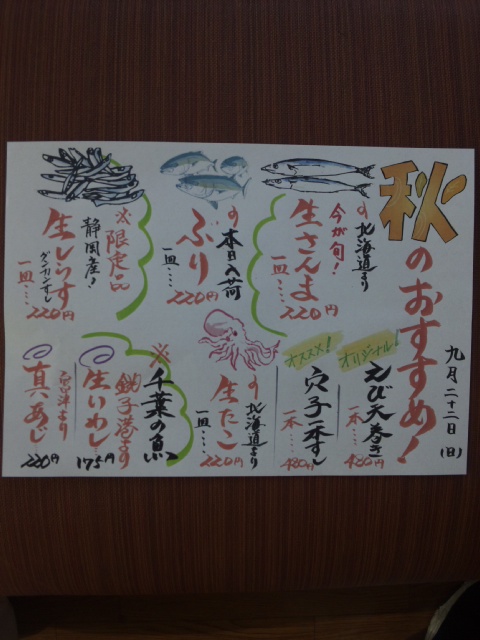 秋のおすすめ!
九月二十二日(日)
北海道より
今が旬!
生さんま
一皿…
220円
本日入荷
ぶり
220円
※限定品
静岡産!
生しらす
グンカンすし
一皿…
220円
オリジナル!
えび天巻き
一本…
480円
オススメ!
穴子一本すし
一本…
480円
北海道より
生たこ
一皿…
220円
※千葉の魚
銚子港より
生いわし…
175円
真あじ
220円